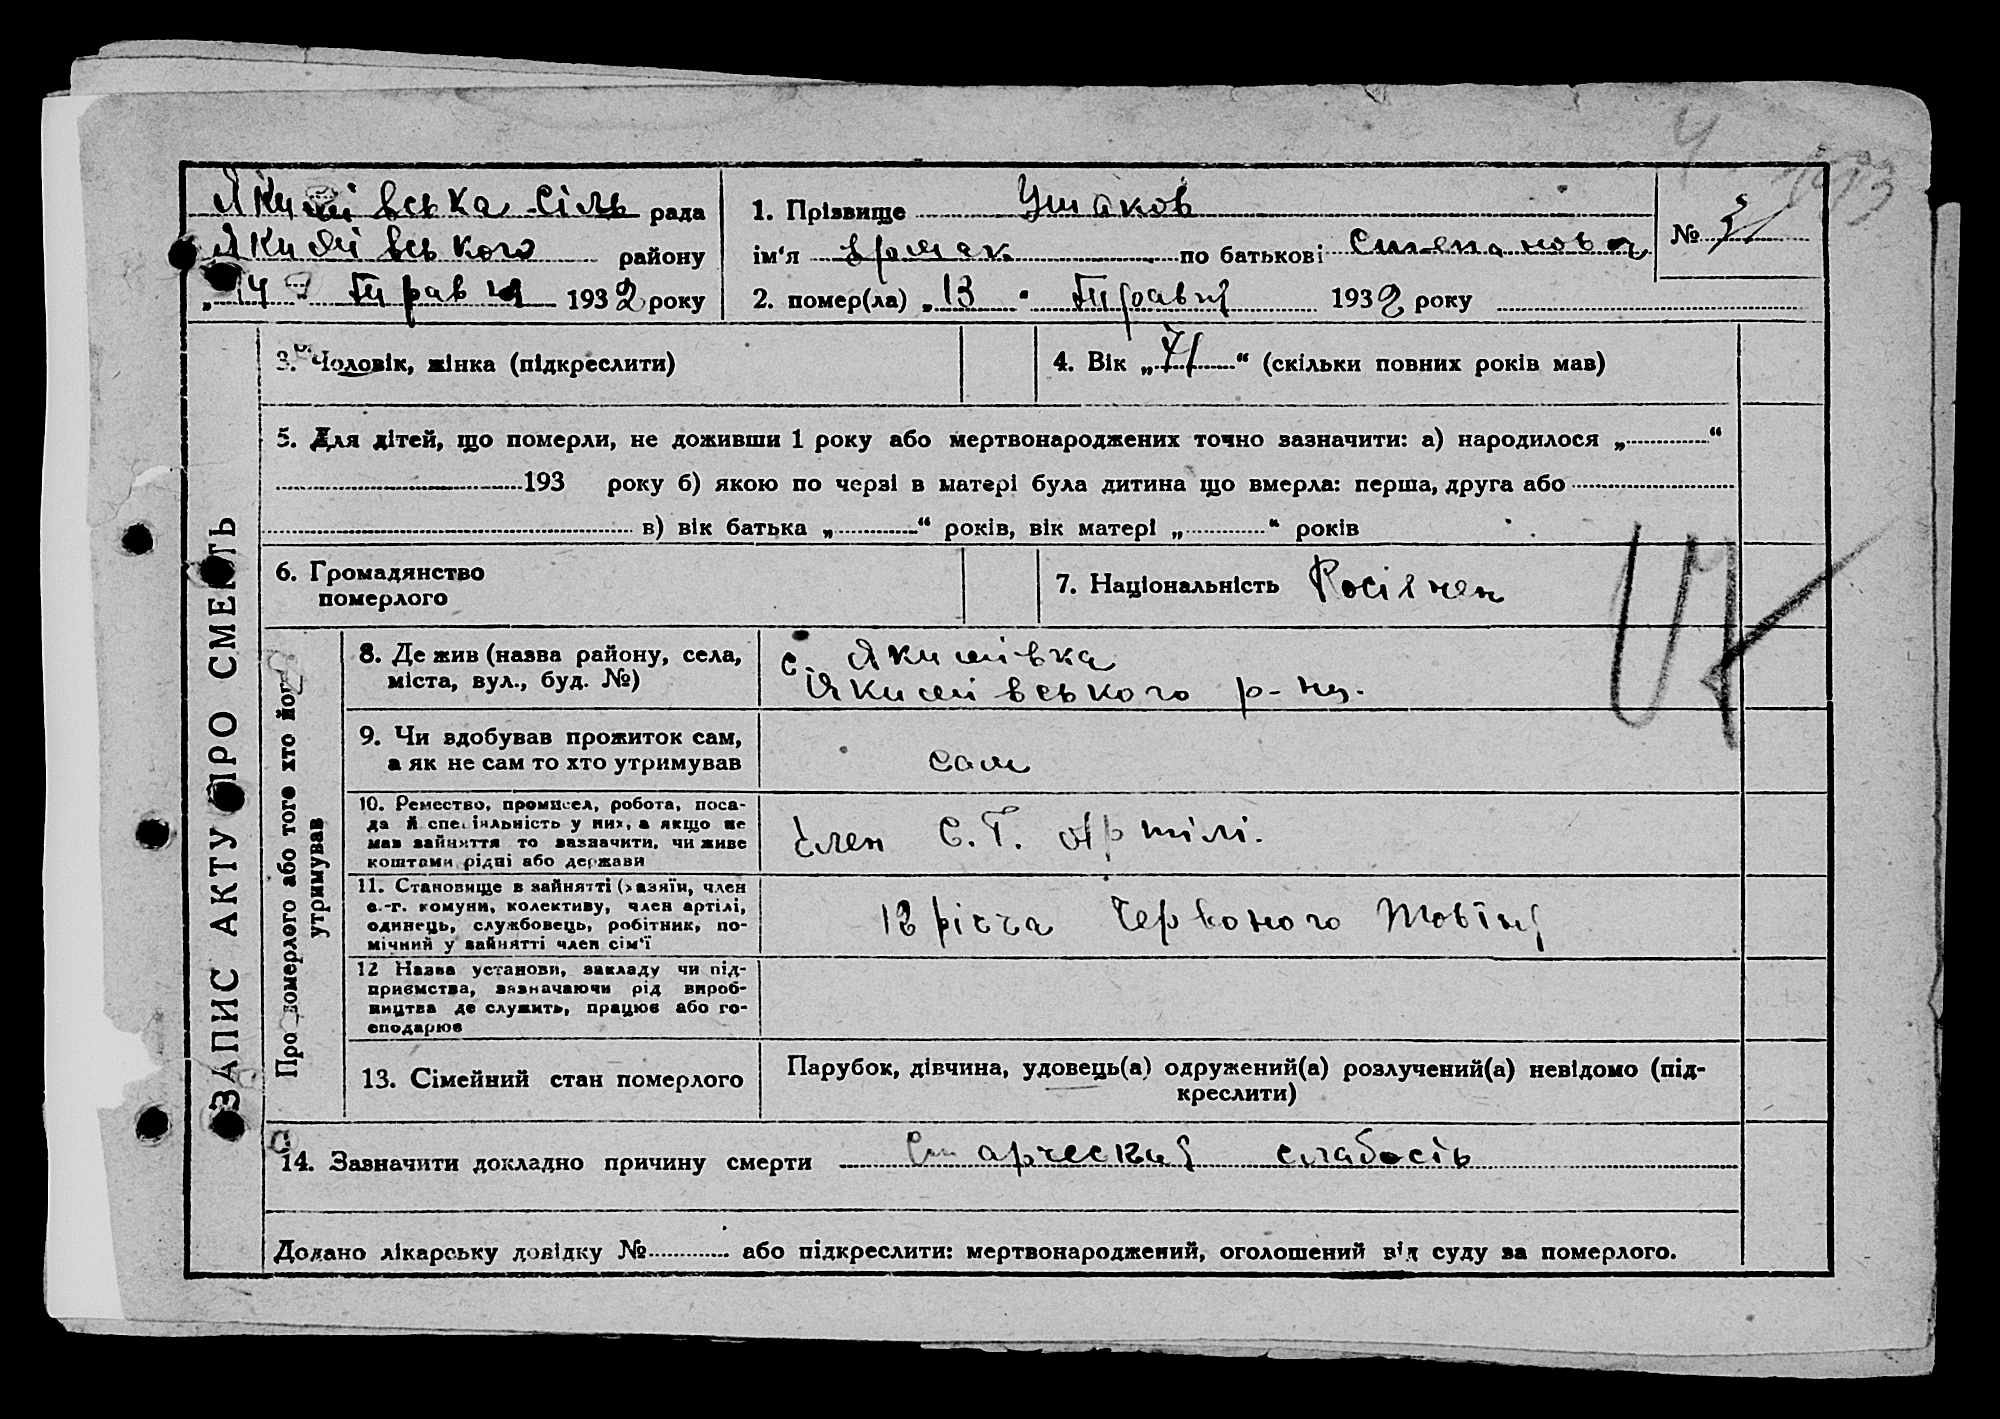 Якимівська сіль рада
Якимівського району
„14" Травня 1932 року
1. Прізвище Ушаков
ім'я Єрмак по батькові Степанович
№ 31
2. помер(ла) „13" Травня 1932 року
ЗАПИС АКТУ ПРО СМЕРТЬ
3. Чоловік, жінка (підкреслити)
4. Вік „71" (скільки повних років мав)
5. Для дітей, що померли, не доживши 1 року або мертвонароджених точно зазначити: а) народилося „ "
193 року б) якою по черзі в матері була дитина що вмерла: перша, друга або
в) вік батька „ " років, вік матері „ " років
6. Громадянство
померлого
7. Національність Росіянен
Про померлого або того хто його
утримував
8. Де жив (назва району, села,
міста, вул., буд. №)
с. Якимівка
Якимівського р-ну.
9. Чи здобував прожиток сам,
а як не сам то хто утримував
сам
10. Ремество, промисел, робота, поса-
да й спеціяльність у них, а якщо не
мав зайняття то зазначити, чи живе
коштами рідні або держави
Член С.Г. Артілі.
11. Становище в зайнятті (хазяїн, член
с.-г. комуни, колективу, член артілі,
одинець, службовець, робітник, по-
мічний у зайнятті член сім'ї
12 річчя Червоного Жовтня
12 Назва установи, закладу чи під-
приємства, зазначаючи рід вироб-
ництва де служить, працює або го-
сподарює
13. Сімейний стан померлого
Парубок, дівчина, удовець(а) одружений(а) розлучений(а) невідомо (під-
креслити)
14. Зазначити докладно причину смерти Старческая слабость
Додано лікарську довідку № або підкреслити: мертвонароджений, оголошений від суду за померлого.